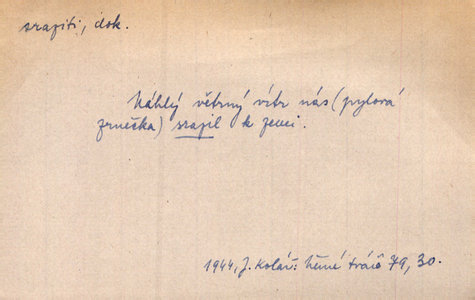 sraziti, dok.
Náhlý větrný vítr nás (pylová
zrnéčka) srazil k zemi.
1944, J. Kolář: Němé tváře 79, 30.